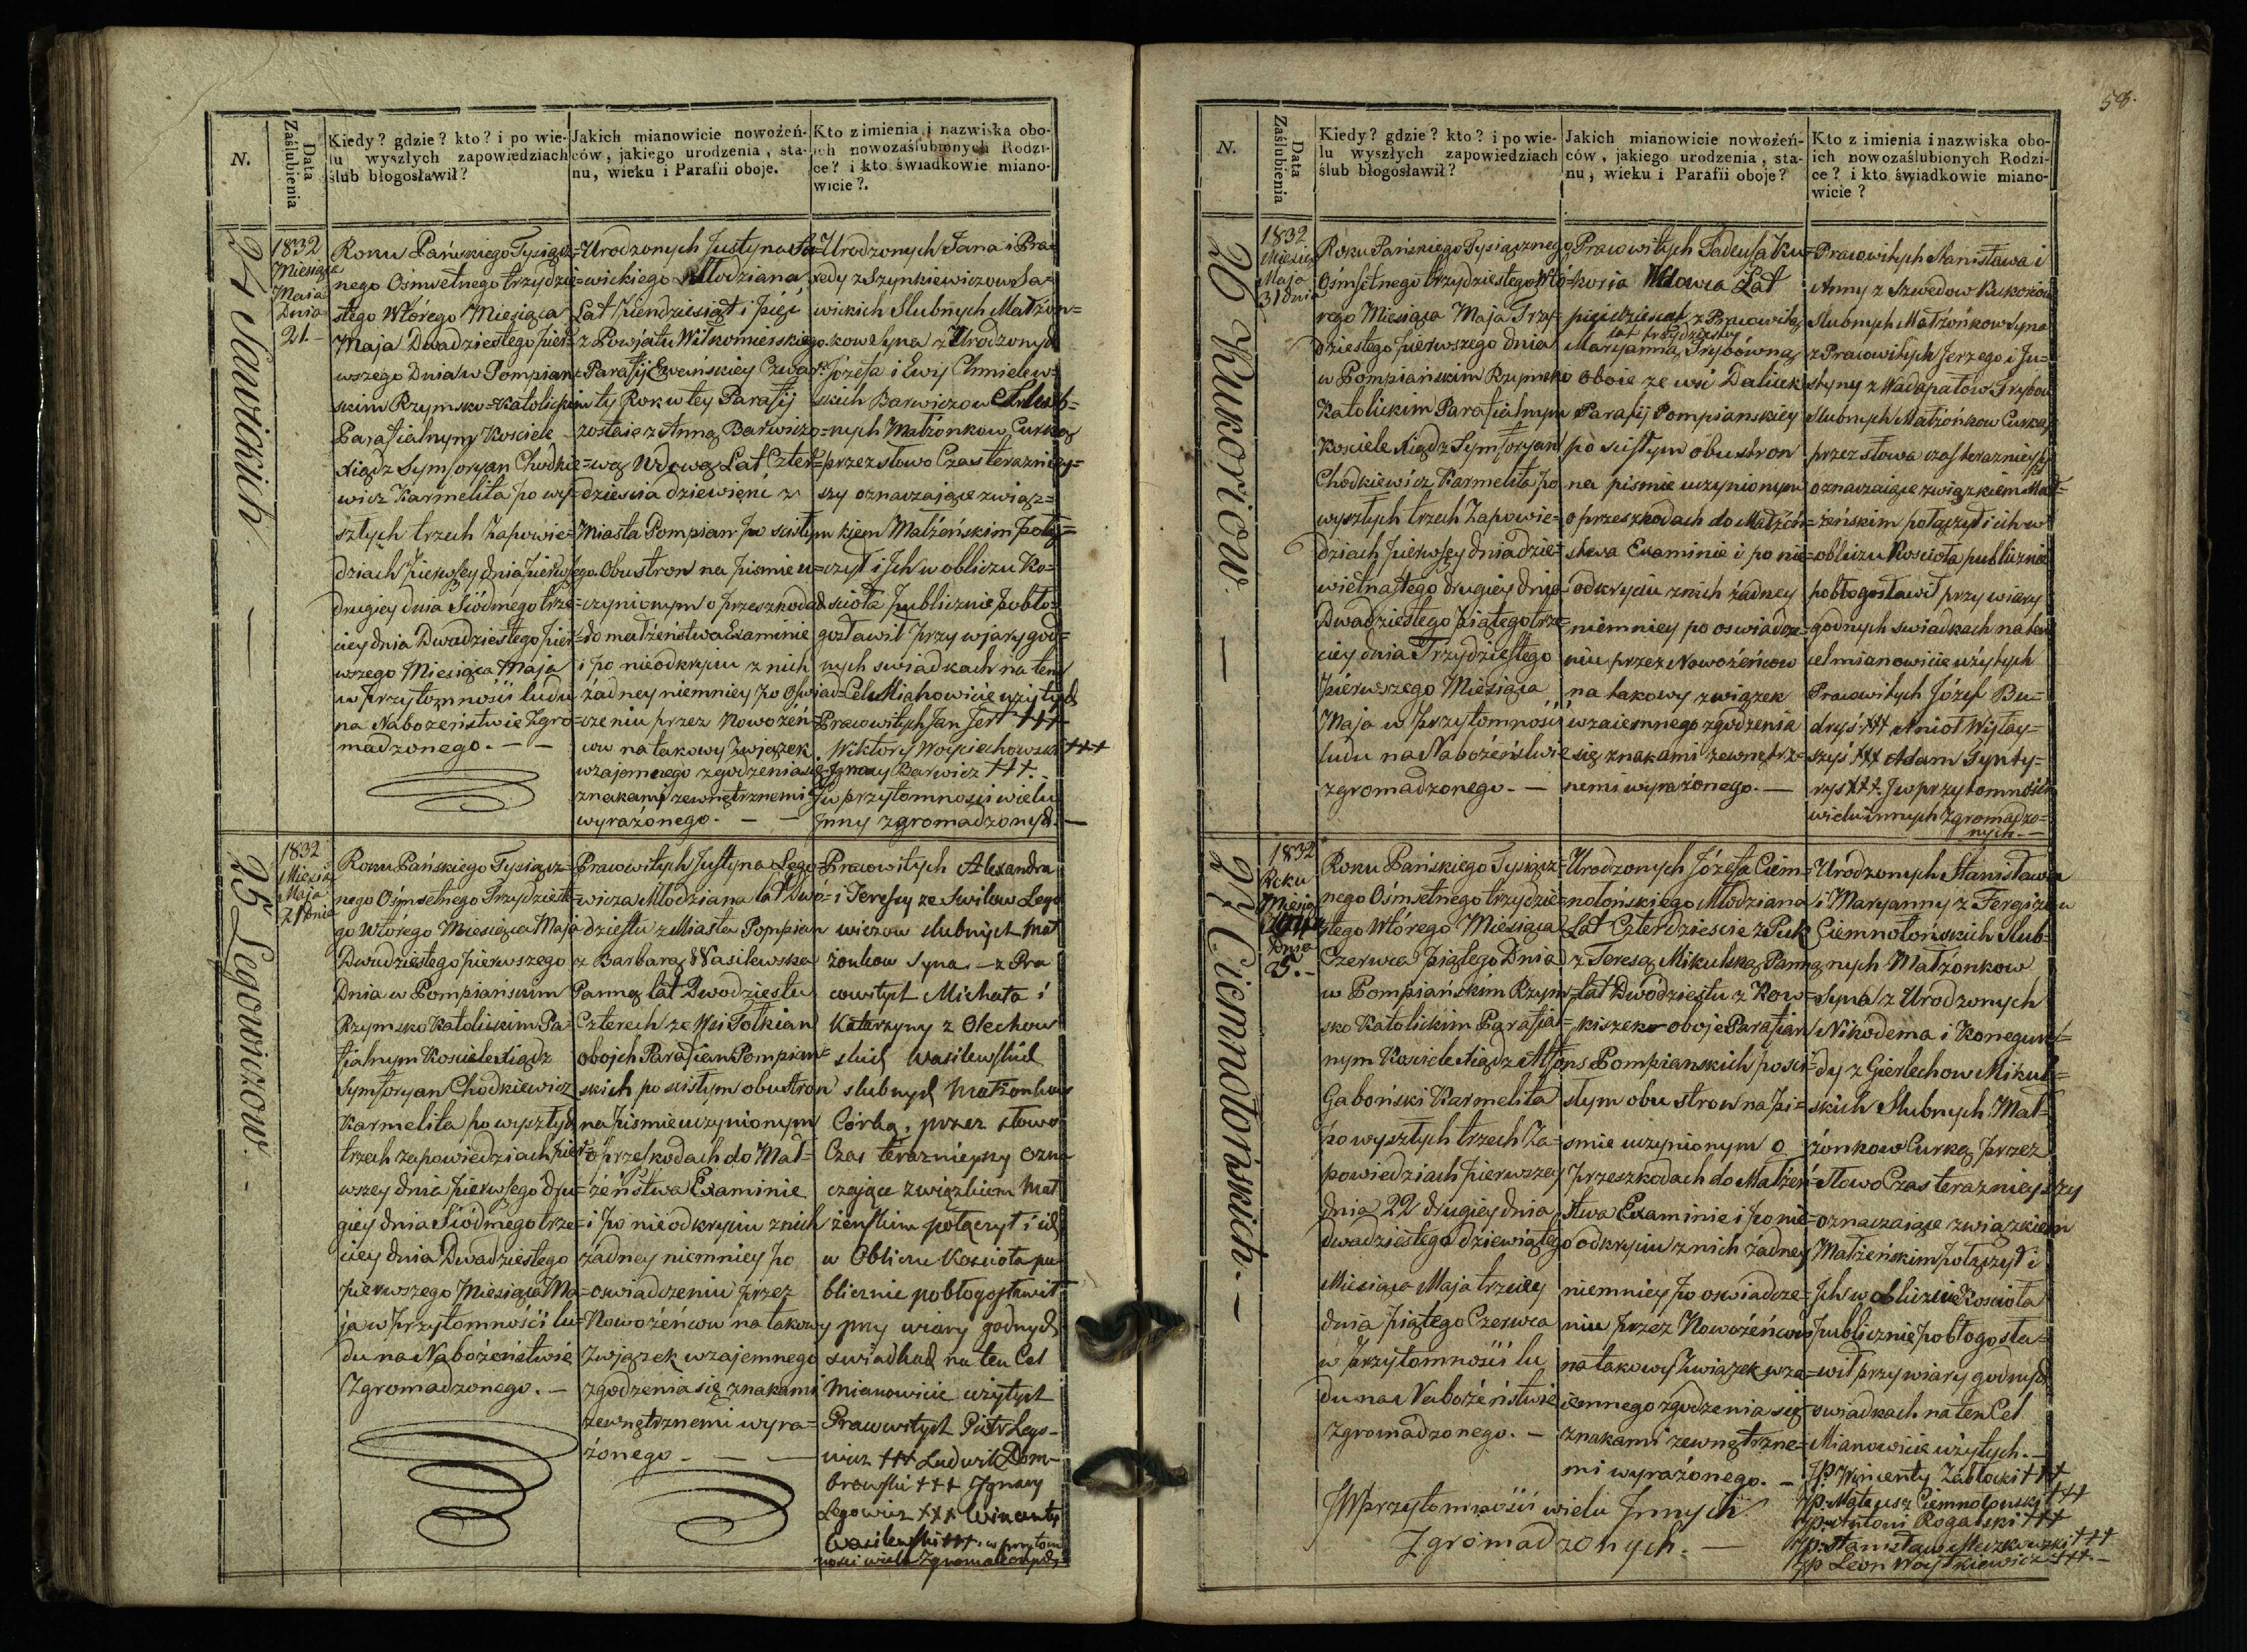 N.
Data Zaślubienia
Kiedy? gdzie? kto? i po wie-
lu wyszłych zapowiedziach
ślub błogosławił?
Jakich mianowicie nowożeń-
ców, jakiego urodzenia, sta-
nu, wieku i Parafii oboje.
Kto z imienia i nazwiska obo-
ich nowozaślubionych Rodzi-
ce? i kto świadkowie miano-
wicie?.
24 Sawickich. —
1832
Miesiąca
Maia
Dnia
21.—
Roku Pańskiego Tysiącz=
nego Ośmsetnego trzydzie=
stego Wtórego Miesiąca
Maja Dwadziestego pier=
wszego Dnia w Pompian=
skim Rzymsko=Katolickim
Parafialnym Kościele
Xiądz Symforyan Chodkie=
wicz Karmelita po wy=
szłych trzech Zapowie=
dziach pierwszey dnia pierwszego
drugiey dnia Siódmego trze=
ciey dnia Dwadziestego pier=
wszego Miesiąca Maja
w przytomności ludu
na Nabożeństwie Zgro=
madzonego. — —
Urodzonych Justyna Sa=
wickiego Młodziana
Lat piendziesiąt i pięć
z Powjatu Wiłkomierskiego
Parafij Czwar=
ty Rok w tey Parafij
zostaie z Anną Barwiczo=
wą Wdową Lat Czter=
dziescia dziewięni z
Miasta Pompian po scisłym
Obustron na pismie u=
czynionym o przeszkodach
do małżeństwa Examinie
i po nieodkryciu z nich
żadney niemniey po oswjad=
czeniu przez Nowożeń=
ców na takowy Zwjązek
wzajemnego zgodzenia się
znakami zewnętrznemi
wyrażonego. — —
Urodzonych Jana i Bra=
xedy z Szynkiewiczow Sa=
wickich Slubnych Małżon=
kow Syna z Urodzonych
Józefa i Ewij Chmielew=
skich Barwiczow Slub=
nych Małżonkow Curką
przez słowo Czas terazniey=
szy oznaczające związ=
kiem Małżeńskim połą=
czył i Jch w obliczu Ko=
scioła publicznie pobło=
gosławił przy wjary god=
nych swiadkach na ten
Cel Mianowicie użytych
Pracowitych Jan Jert +++
Wiktory Woyciechowski +++
Ignacy Barwicz +++.
J w przytomności wielu
Jnny zgromadzonych. —
25 Legowiczow. -
1832
Miesiąc
Maja
21 dnia
Roku Pańskiego Tysiącz=
nego Ośmsetnego Trzydzieste=
go Wtórego Miesiąca Maja
Dwudziestego pierwszego
Dnia w Pompiańskim
Rzymsko Katolickim Pa=
fialnym Kosciele Xiądz
Symforyan Chodkiewicz
Karmelita po wyszłych
trzech zapowiedziach pier=
wszey dnia pierwszego dru=
giey dnia Siódmego trze=
ciey dnia Dwadziestego
pierwszego Miesiąca Ma=
ja w przytomności lu=
du na Nabożeństwie
Zgromadzonego. —
Pracowitych Justyna Lego=
wicza Młodziana lat Dwó=
dziestu z Miasta Pompian
z Barbarą Wasilewską
Panną lat Dwodziestu
Czterech ze Wsi Tołkian
oboich Parafian Pompian=
skich po scisłym obustron
na pismie uczynionym
o przeszkodach do Mał=
żeństwa Examinie
i po nieodkryciu z nich
żadney niemniey po
oswiadczeniu przez
Nowożeńcow na takowy
Zwjązek wzajemnego
zgodzenia się znakami
zewnętrznemi wyra=
żonego — — —
Pracowitych Alexandra
i Teressy ze Swiłow Lego
wiczow slubnych Mał
żonkow Syna — z Pra
cowitych Michała i
Katarzyny z Olechow
skich Wasilewskich
slubnych Małżonkow
Córką, przez słowo
Czas terazniejszy ozna
czające związkiem Mał
żeńskim połączył i ich
w Obliczu Kościoła pu
blicznie pobłogosławił
przy wiary godnych
swiadkach na ten Cel
Mianowicie użytych
Pracowitych Piotr Lego-
wicz +++ Ludwik Dom-
browski +++ Ignacy
Legowicz +++ Wincenty
Wasilewski +++. w przytom
ności wielu Zgromadzonych
58.
N.
Data Zaślubienia
Kiedy? gdzie? kto? i po wie-
lu wyszłych zapowiedziach
ślub błogosławił?
Jakich mianowicie nowożeń-
ców, jakiego urodzenia, sta-
nu, wieku i Parafii oboje?
Kto z imienia i nazwiska obo-
ich nowozaślubionych Rodzi-
ce? i kto świadkowie miano-
wicie?
26 Kukoriow. —
1832
Miesiąc
Maja
31 dnia
Roku Pańskiego Tysiącznego
Ośmsetnego trzydziestego Wtó=
rego Miesiąca Maja Trzy=
dziestego pierwszego dnia
w Pompiańskim Rzymsko
Katolickim Parafialnym
Kosciele Xiądz Symforyan
Chodkiewicz Karmelita po
wyszłych trzech Zapowie=
dziach pierwszey dnia dzie=
wietnastego drugiey dnia
Dwadziestego piątego trze=
ciey dnia Trzydziestego
pierwszego Miesiąca
Maja w przytomności
ludu na Nabożeństwie
zgromadzonego. —
Pracowitych Tadeusza Ku=
koria Wdowca Lat
pięćdziesiąt z Pracowitą
lat trzydziestu
Maryanną Trybówną
oboie ze wsi Daliuk
Parafij Pompianskiey
po scisłym obustron
na pismie uczynionym
o przeszkodach do Małżeń=
stwa Examinie i po nie=
odkryciu z nich żadney
niemniey po oswiadcze=
niu przez Nowożeńcow
na takowy związek
wzaiemnego zgodzenia
się znakami zewnętrz=
nemi wyrażonego. —
Pracowitych Stanisława i
Anny z Szwedow Kukoriow
Slubnych Małżonkow Syna
z Pracowitych Jerzego i Ju=
styny z Wadapałow Trybow
Slubnych Małżonkow Curką
przez słowa czas terazniejszy
oznaczaiące związkiem Mał=
żeńskim połączył i ich w
obliczu Kościoła publicznie
pobłogosławił przy wiary
godnych swiadkach na ten
cel mianowicie użytych
Pracowitych Józef Bu=
dryś +++ Anioł Wistay=
szyś +++ Adam Gynty=
rys +++. J w przytomności
wielu innych Zgromadzo=
nych. —
27 Ciemnołońskich. —
1832
Roku
Miesiąc
Dnia
5.—
Roku Pańskiego Tysiącz=
nego Ośmsetnego trzydzie=
stego Wtórego Miesiąca
Czerwca piątego Dnia
w Pompiańskim Rzym=
sko Katolickim Parafial=
nym Kosciele Xiądz Alfons
Gaboński Karmelita
po wyszłych trzech Za=
powiedziach pierwszey
dnia 22 drugiey dnia
dwadziestego dziewiątego
Miesiąca Maja trzeciey
dnia piątego Czerwca
w przytomności lu
du na Nabożeństwie
Zgromadzonego. —
Urodzonych Józefa Ciem=
nołońskiego Młodziana
Lat Czterdziescie z Puk
z Teresą Mikulską Panną
lat Dwódziestu z Kow=
kiszek oboje Parafian
Pompianskich po sci=
słym obu stron na pi=
smie uczynionym o
przeszkodach do Małżeń=
stwa Examinie i po nie=
odkryciu z nich żadney
niemniey po oswiadcze=
niu przez Nowożeńcow
na takowy Zwiazek wza=
iemnego zgodzenia się
znakami zewnętrzne=
mi wyrażonego. —
Urodzonych Stanisława
i Maryanny z Fergizow
Ciemnołońskich Slub=
nych Małżonkow
Syna z Urodzonych
Nikodema i Konegun=
dy z Gierlechow Mikul=
skich Slubnych Mał=
żonkow Curką przez
słowo Czas teraznieyszy
oznaczaiące związkiem
Małżeńskim połączył i
Jch w obliczu Kościoła
publicznie pobłogosła=
wił przy wiary godnych
swiadkach na ten Cel
Mianowicie użytych. —
Jp. Wincenty Zabłocki +++
Jp. Mateusz Ciemnołonski +++
Jp. Antoni Rogalski +++
Jp. Stanisław Meczkowski +++
Jp Leon Woytkiewicz +++. —
J W przytomności wielu Jnnych
Zgromadzonych. —